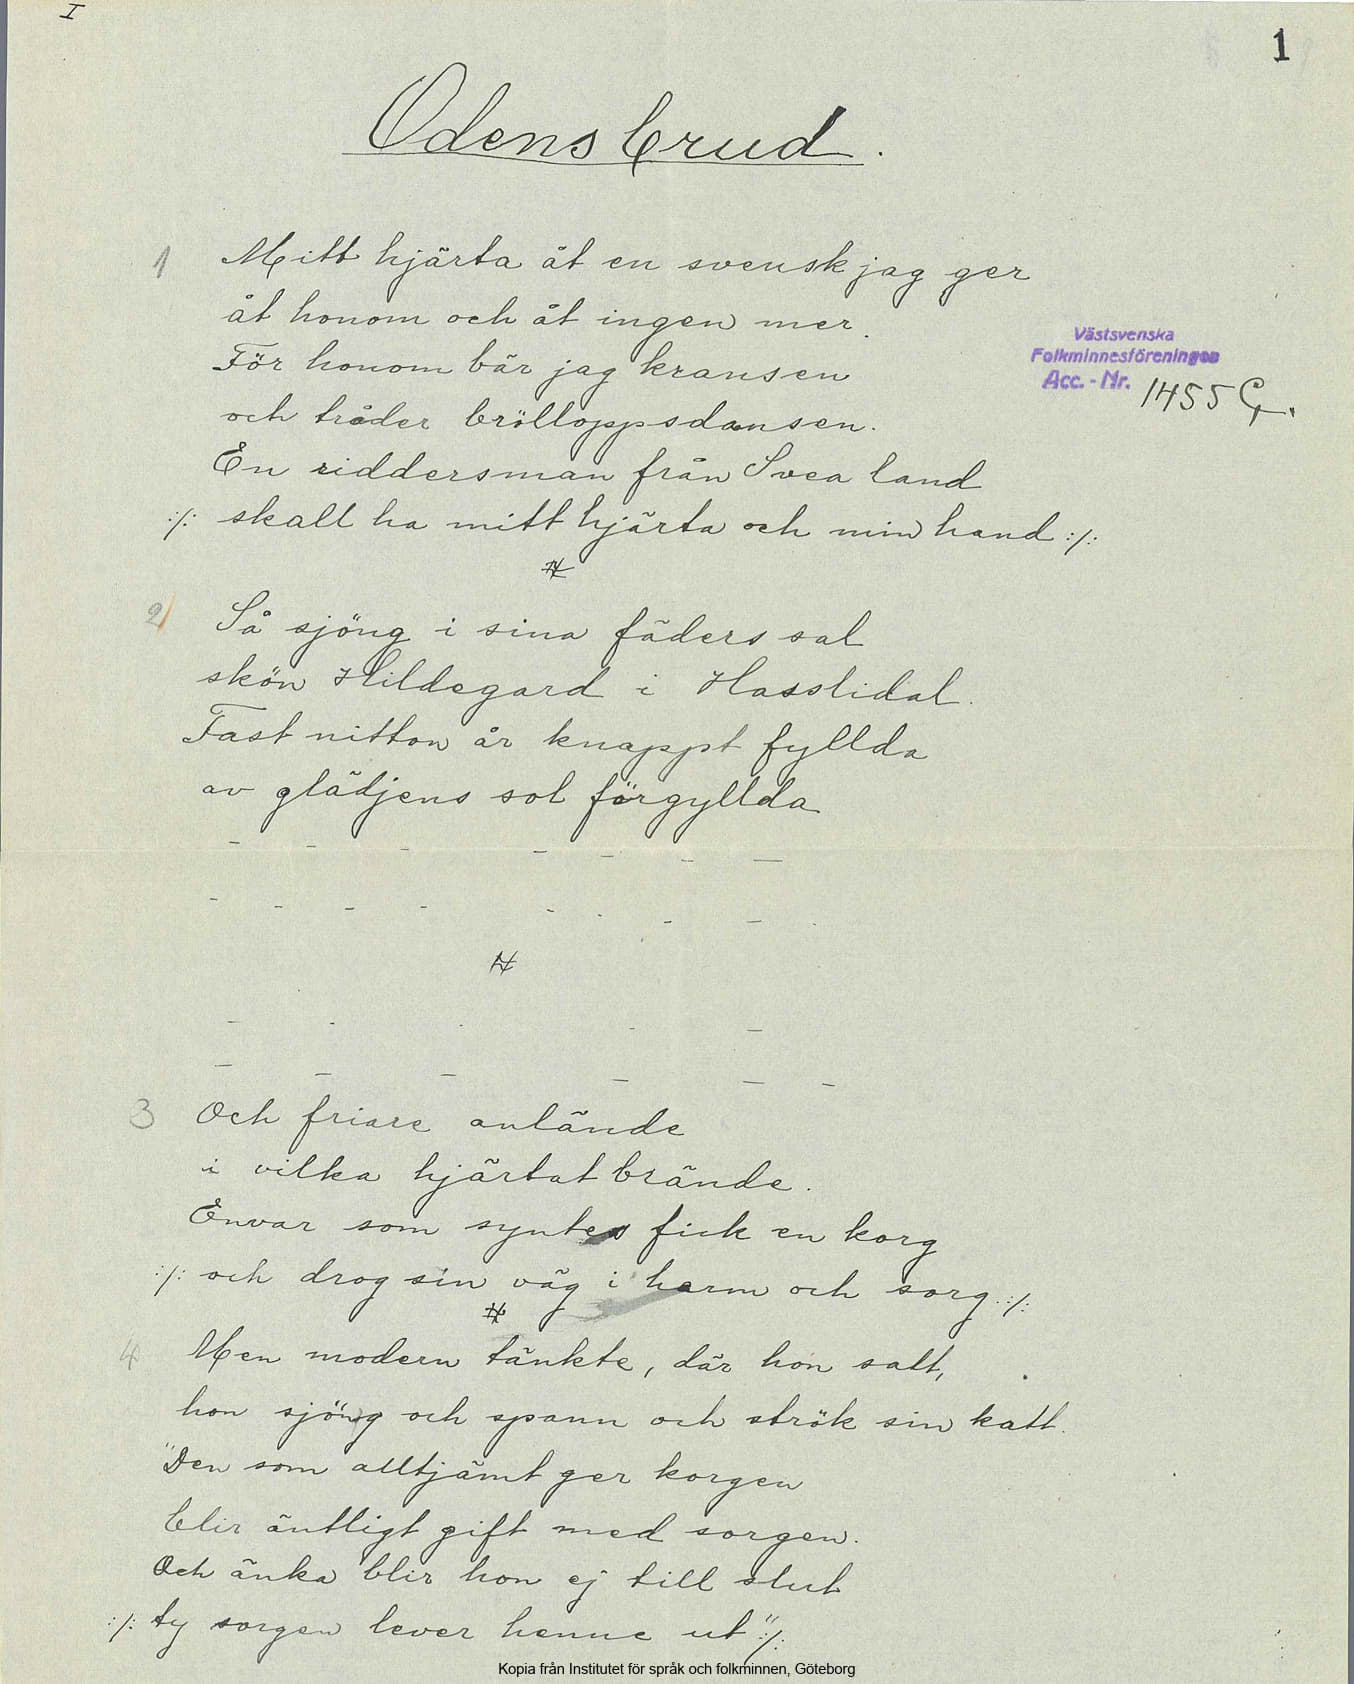 I
1
Odens brud.
1 Mitt hjärta åt en svensk jag ger
åt honom och åt ingen mer.
För honom bär jag kransen
och tråder brölloppsdansen.
En riddersman från Svea land
:/: skall ha mitt hjärta och min hand :/:
Västsvenska
Folkminnesföreningen
Acc. - Nr. 1455 G.
2 Så sjöng i sina fäders sal
skön Hildegard i Hasslidal.
Fast nitton år knappt fyllda
av glädjens sol förgyllda
- - - - - - -
- - - - - - - -
- - - - -
- - - - - -
3 Och friare anlände
i vilka hjärtat brände.
Envar som syntes fick en korg
:/: och drog sin väg i harm och sorg. :/:
4 Men modern tänkte, där hon satt,
hon sjöng och spann och strök sin katt.
"Den som alltjämt ger korgen
blir äntligt gift med sorgen.
Och änka blir hon ej till slut
:/: ty sorgen lever henne ut" :/:
Kopia från Institutet för språk och folkminnen, Göteborg